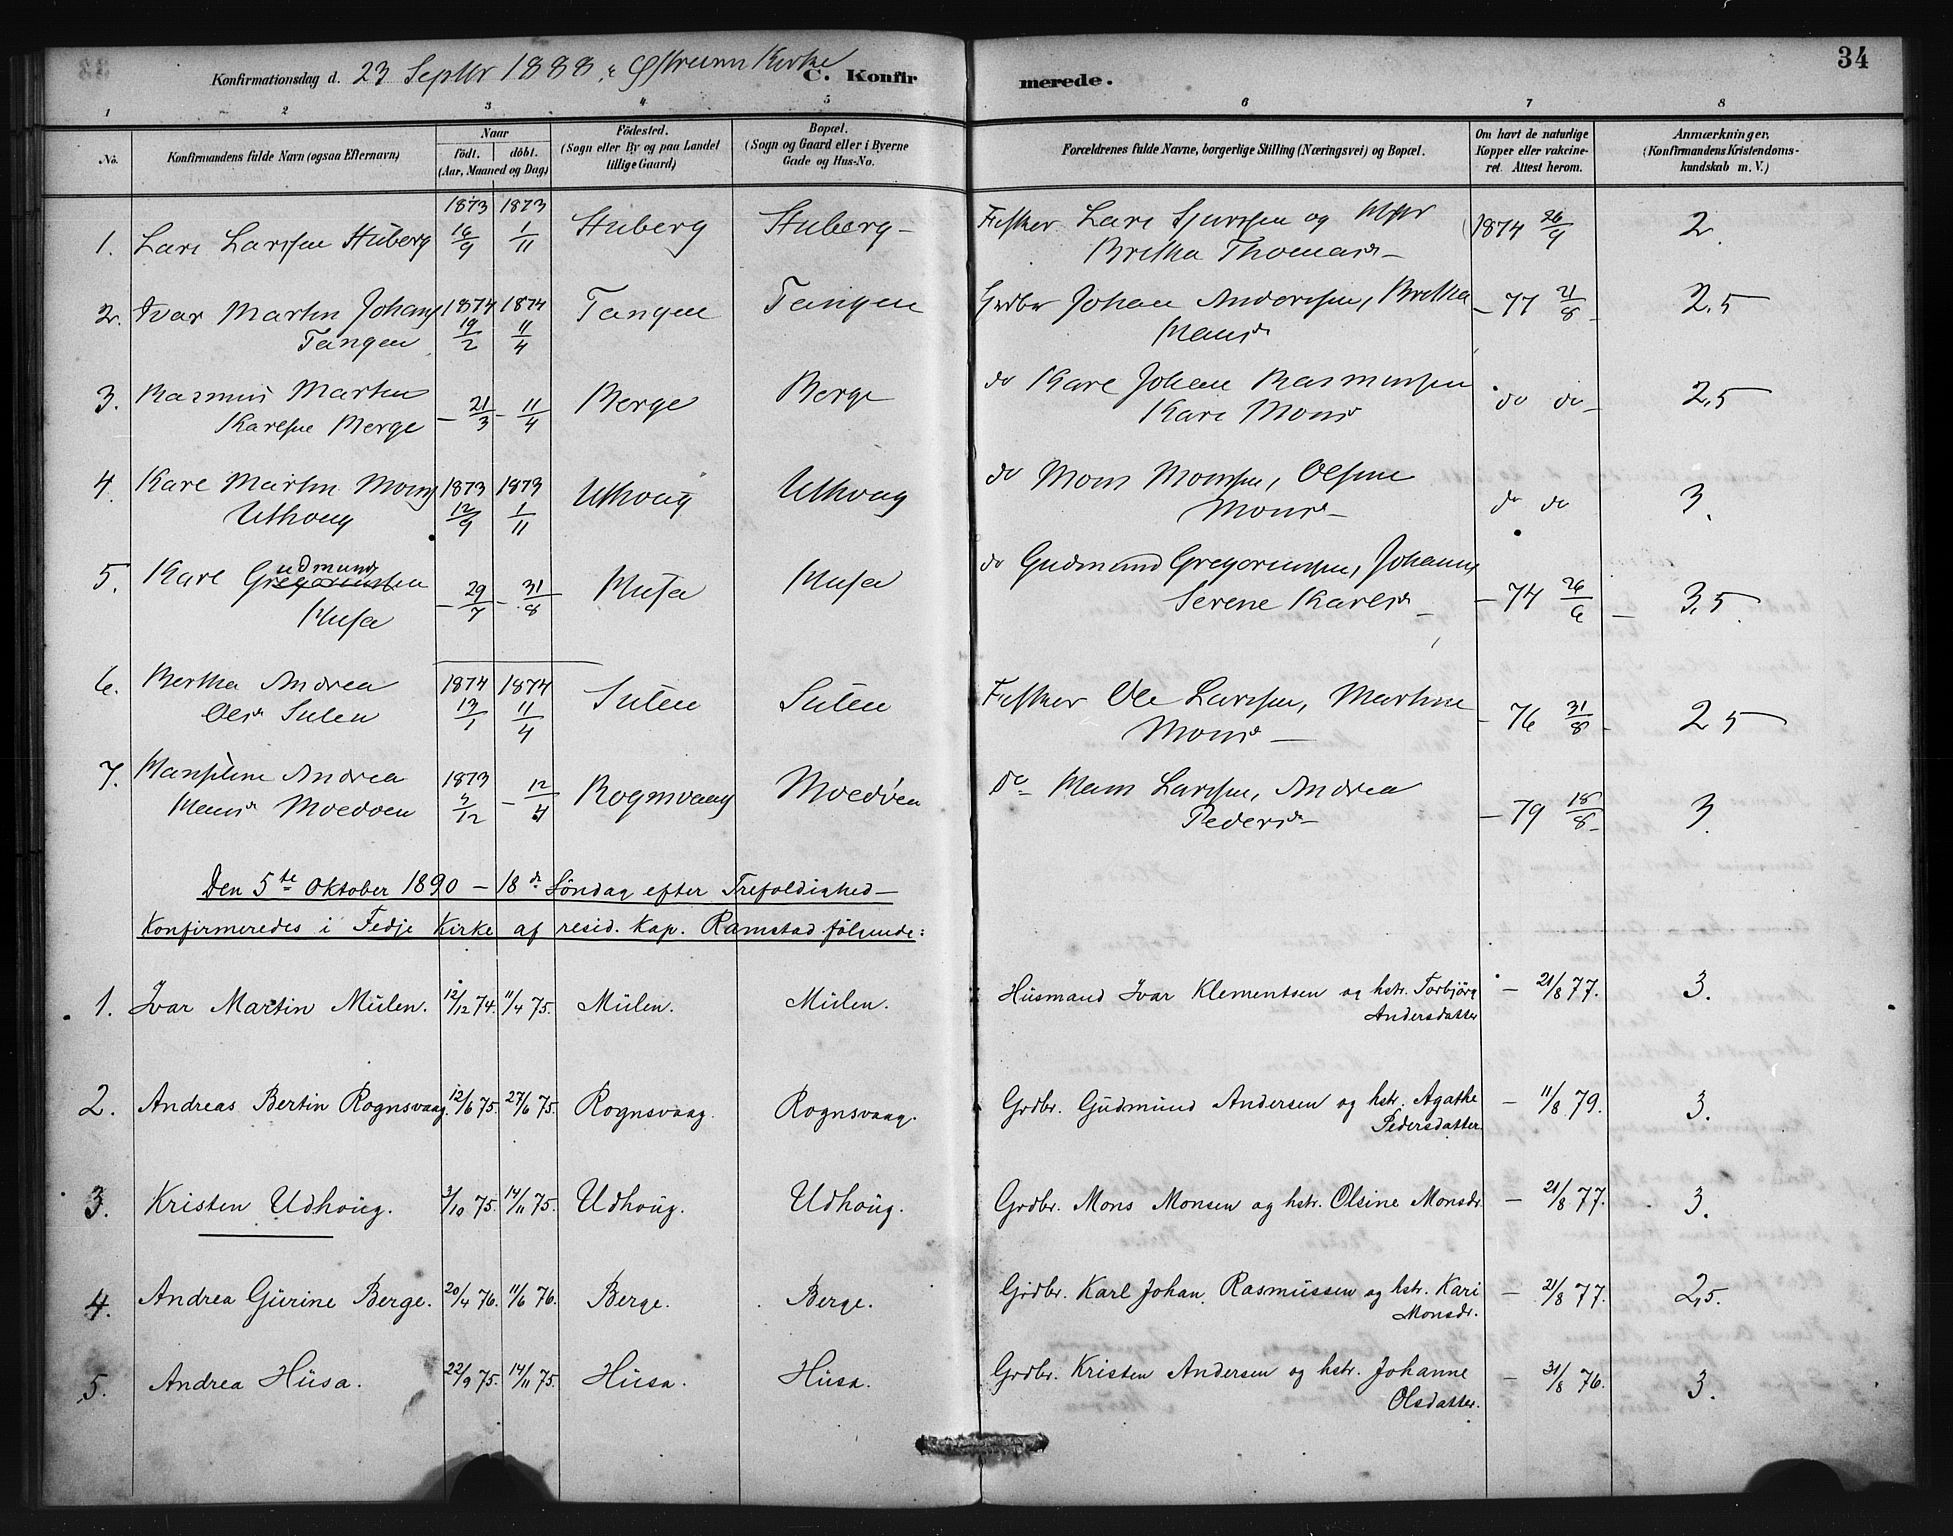 34
Konfirmationsdag d. 23 Septbr 1888 Kirke
C. Konfirmerede.
1 2 3 4 5 6 7 8
No.
Konfirmandens fulde Navn (ogsaa Efternavn)
Naar
födt. döbt.
(Aar, Maaned og Dag)
Födested.
(Sogn eller By og paa Landet
tillige Gaard)
Bopæl.
(Sogn og Gaard eller i Byerne
Gade og Hus-No.
Forældrenes fulde Navne, borgerlige Stilling (Næringsvei) og Bopæl.
Om havt de naturlige
Kopper eller vakcine-
ret. Attest herom.
Anmærkninger,
(Konfirmandens Kristendoms-
kundskab m. V.)
1873 1873
1. Lars Larssen Stuberg 16/9 1/11 Stuberg Stuberg Fisker Lars Sjurssen og 1874 26/9 2.
Bretha Thomasd
2. Ivar Martin Johans 1874 1874 Tangen Tangen Grdbr Johan Anderssen, Bretha - 77 21/8 2,5
Tangen 19/2 11/4 Mansd
3. Rasmus Martin Berge Berge do Karl Johan Rasmussen do do 2,5
Karlsen Berge - 21/3 - 11/4 Kari Monsd
4. Karl Martin Mons 1873 1873 Uthoug Uthoug do Mons Monssen, Olsine do do 3.
Uthoug 12/9 1/11 Monsd
5. Karl Gregoriussen - 29/7 - 31/8 Husa Husa do Gudmund Gregoriussen, Johanne - 74 26/6 3,5
udmund
Husa Serene Karlsd
6. Bertha Andrea 1874 1874 Sulen Sulen Fisker Ole Larssen, Martine - 76 31/8 2 5
Olsd Sulen 13/1 11/4 Monsd
7. Mansline Andrea 1873 - 12/4 Rognsvaag Moedöen Do Mans Larssen, Andrea - 79 18/8 3.
Mansd Moedöen 7/12 Pedersd
Den 5te Oktober 1890 - 18de Söndag efter Trefoldighed -
Konfirmeredes i Fedje Kirke af resid. Kap. Ramstad fölgende:
1. Ivar Martin Mulen. 12/12 74. 11/4 75. Mulen. Mulen. Husmand Ivar Klementsen og hstr. Torbjörg - 21/8 77. 3.
Andersdatter
2. Andreas Bertin Rognsvaag. 12/6 75. 27/6 75. Rognsvaag. Rognsvaag. Grdbr. Gudmund Andersen og hstr. Agathe - 11/8 79. 3.
Pedersdatter
3. Kristen Udhoug. 3/10 75. 14/11 75. Udhoug. Udhoug. Grdbr. Mons Monsen og hstr. Olsine Monsdr. - 21/8 77. 3.
4. Andrea Gurine Berge. 20/4 76. 11/6 76. Berge. Berge. Grdbr. Karl Johan Rasmussen og hstr. Kari - 21/8 77. 2,5.
Monsdr.
5. Andrea Husa. 22/9 75. 14/11 75. Husa. Husa. Grdbr. Kristen Andersen og hstr. Johanne - 31/8 76. 3.
Olsdatter.